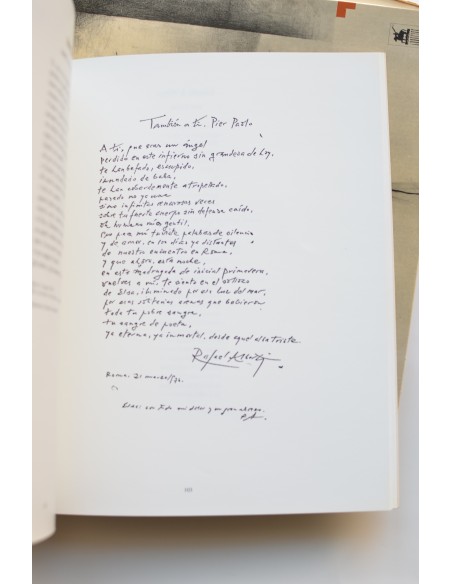 También a ti, Pier Paolo
A ti, que eras un ángel
perdido en este infierno sin grandeza de hoy,
te han befado, escupido,
inundado de baba,
te han cobardemente atropellado,
pasado no ya una
sino infinitas veces
sobre tu fuerte cuerpo sin defensa caído,
oh humano más gentil,
que para mí tuviste palabras de silencio
y de amor, en los días ya distantes
de nuestro encuentro en Roma,
y que ahora, esta noche,
en esta madrugada de inicial primavera,
vuelves a mí, te siento en el
de iluminado por esa luz del mar,
por esas solitarias arenas que bebieron
toda tu pobre sangre,
tu sangre de poeta,
ya eterna, ya inmortal, desde aquel alba triste.
Rafael Alberti
Roma. 21 marzo/
con todo mi dolor y un gran abrazo.